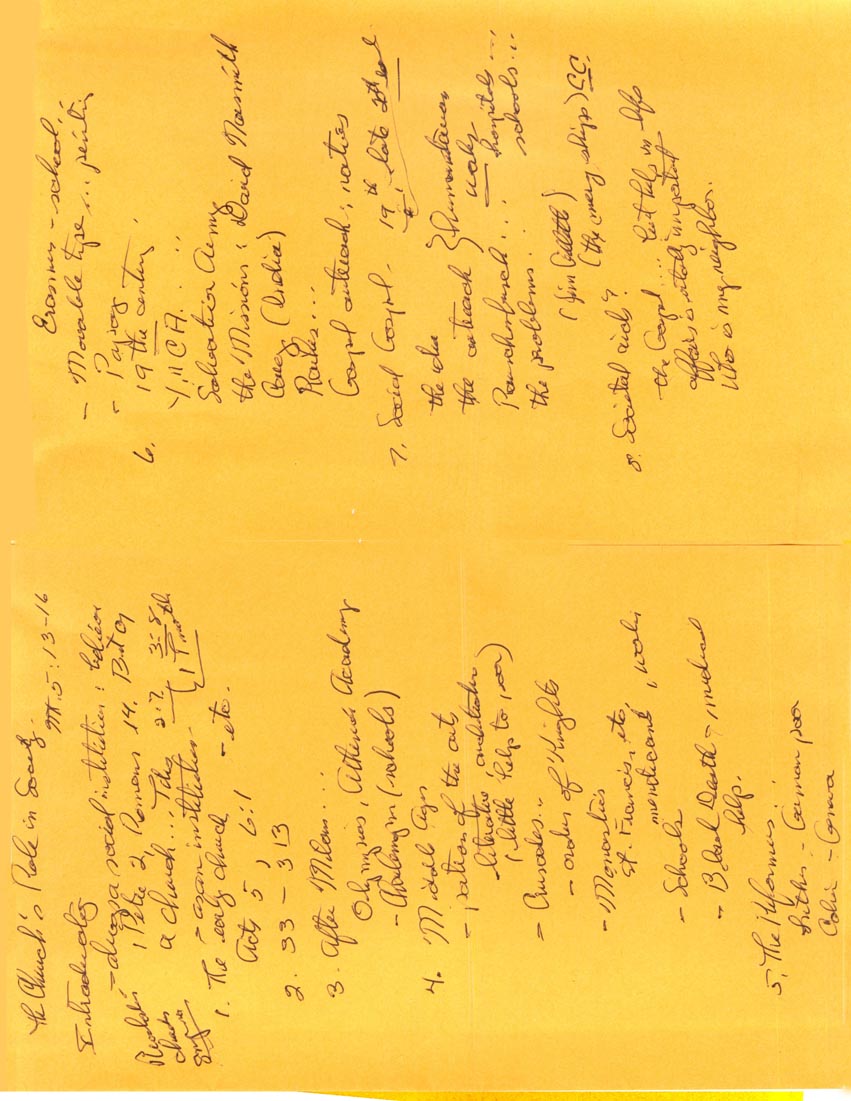 The Church's Role in Society.
Mt. 5:13-16
Introductory
- always a social institution: believers
1 Peter 2, Romans 14. But Q
a church... Titus 2:7, 3:8
1 Timoth
- as an institution -
1. The early church - etc.
Acts 5, 6:1
2. 33 - 313
3. After Milan...
Olympics, Athens Academy
- Charlemagne (schools)
4. Middle Ages
- patron of the arts
literature, architecture
(little help to poor)
- Crusades..
- order of Knights
- Monasteries
St. Francis, etc.
mendicant, works
- Schools
- Black Death - medical
help.
5. The Reformers:
Luther - German poor
Calvin - Geneva
Erasmus - school,
- Movable type ... printing
-
6. 19 the century.
Y.M.C.A. ...
Salvation Army
the Missions: David Nasmith
Carey (India)
Gospel outreach; natives
7. Social Gospel - 19th - late
the idea
the outreach } humanitarian
works
hospitals...
schools...
Rauschenbusch...
the problems...
(Jim
(the mercy ships) CC.
8. Societal aid?
the Gospel... but help in life
affairs is vitally important
Who is my neighbor.